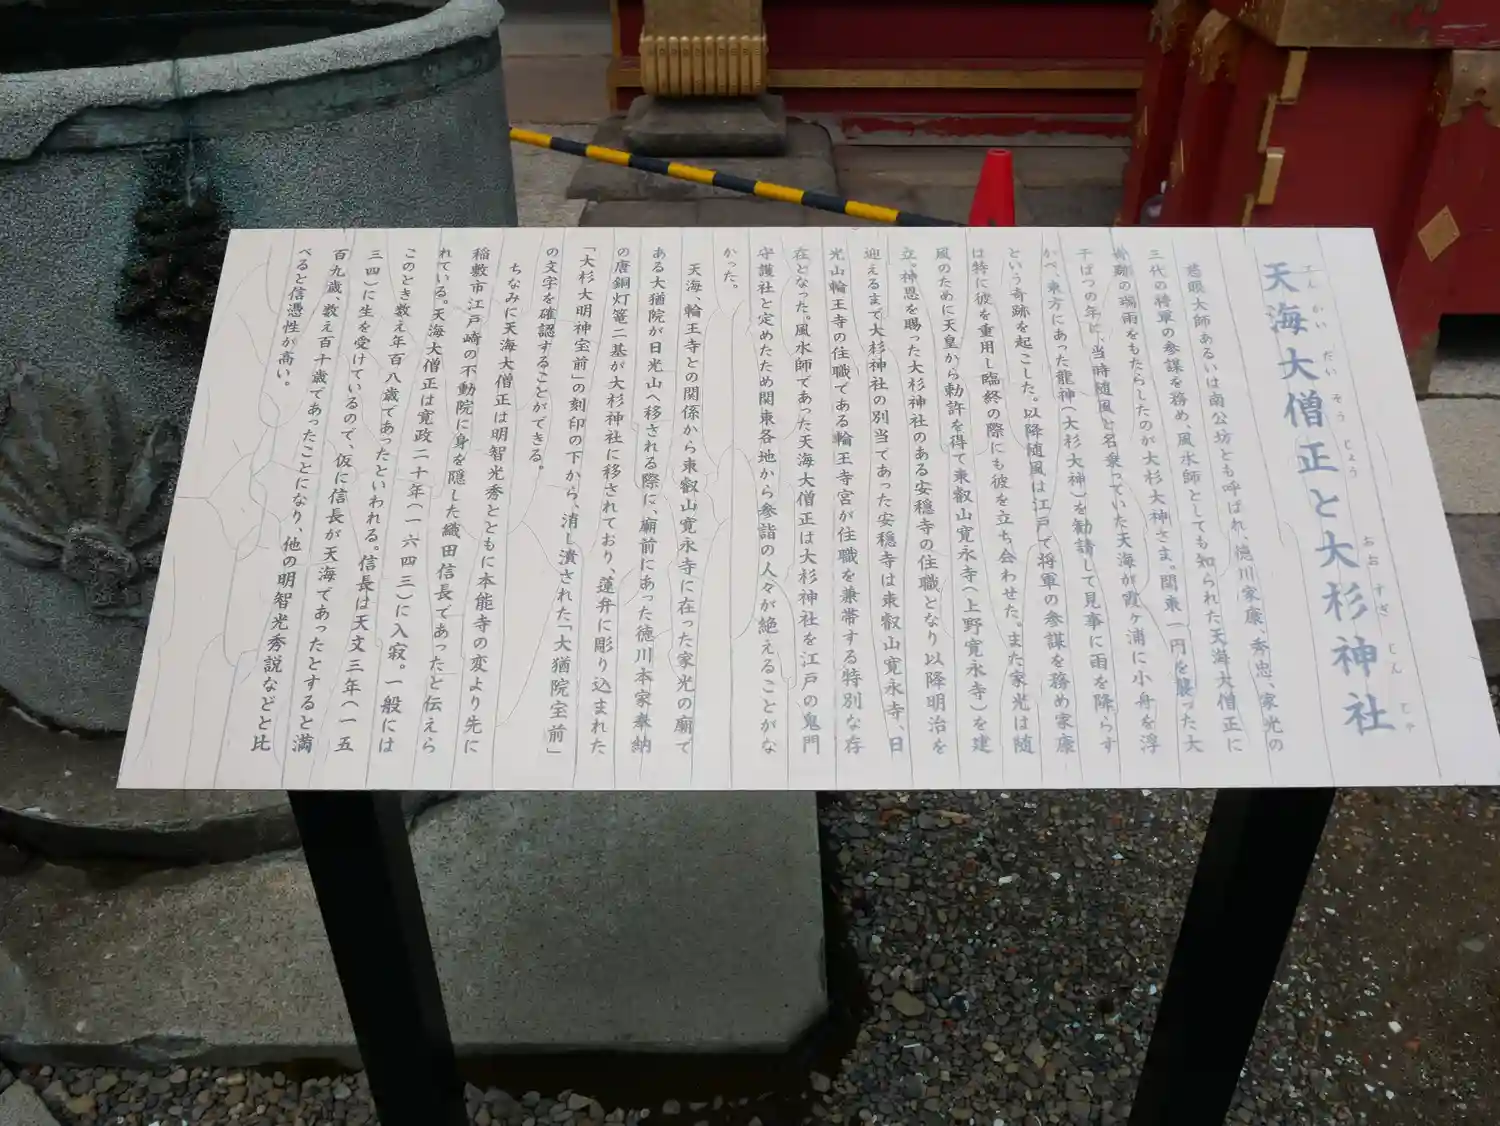 天海大僧正と大杉神社
てんかいだいそうじょう おおすぎじんじゃ
慈眼大師あるいは南公坊とも呼ばれ、徳川家康、秀忠、家光の
三代の将軍の参謀を務め、風水師としても知られた天海大僧正に
御跡の瑞雨をもたらしたのが大杉大神さま。関東一円を襲った大
干ばつの年に、当時随風と名乗っていた天海が霞ヶ浦に小舟を浮
かべ、東方にあった龍神(大杉大神)を勧請して見事に雨を降らす
という奇跡を起こした。以降随風は江戸で将軍の参謀を務め家康
は特に彼を重用し臨終の際にも彼を立ち会わせた。また家光は随
風のために天皇から勅許を得て東叡山寛永寺(上野寛永寺)を建
立。神恩を賜った大杉神社のある安穏寺の住職となり以降明治を
迎えるまで大杉神社の別当てあった安穏寺は東叡山寛永寺、日
光山輪王寺の住職である輪王寺宮が住職を兼帯する特別な存
在となった。風水師であった天海大僧正は大杉神社を江戸の鬼門
守護社と定めたため関東各地から参詣の人々が絶えることがな
かった。
天海、輪王寺との関係から東叡山寛永寺に在った家光の廟で
ある大猶院が日光山へ移される際に、廟前にあった徳川本家奉納
の唐銅灯篭二基が大杉神社に移されており、蓮弁に彫り込まれた
「大杉大明神宝前」の刻印の下から、消し潰された「大猶院宝前」
の文字を確認することができる。
ちなみに天海大僧正は明智光秀とともに本能寺の変より先に
稲敷市江戸崎の不動院に身を隠した織田信長であったと伝えら
れている。天海大僧正は寛政二十年(一六四三)に入寂。一般には
このとき数え年百八歳であったといわれる。信長は天文三年(一五
三四)に生を受けているので、仮に信長が天海であったとすると満
百九歳、数え百十歳であったことになり、他の明智光秀説などと比
べると信憑性が高い。